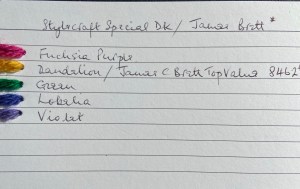 Stylecraft Special DK / James Brett *
Fuchsia Purple
Dandelion / James C Brett Top Value 8462*
Green
Lobelia
Violet